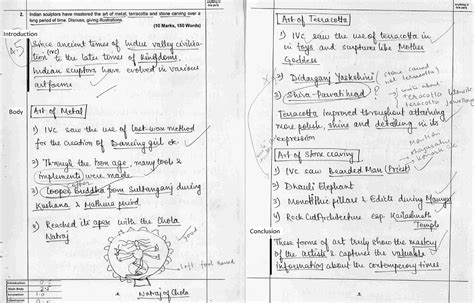 2. Indian sculptors have mastered the art of metal, terracotta and stone carving over a
long period of time. Discuss, giving illustrations.
(10 Marks, 150 Words)
Introduction
Since ancient times of Indus valley civiliza-
tion (IVC) to the later times of kingdoms,
Indian sculptors have evolved in various
art forms
Body
Art of Metal
1) IVC saw the use of lost-wax method
for the creation of Dancing girl etc.
2) Through the Iron age, many tools &
implements were made
3) Copper Buddha from Sultanganj during
Kushana & Mathura period
4) Reached its apex with the Chola
Natraj
hand
left foot raised
Natraj of Chola
Introduction
Main Body
Conclusion
Art of Terracotta
1) IVC saw the use of terracotta in
toys and sculptures like Mother
Goddess
2) Didarganj Yakshini
stone carved
not terracotta
3) Shiva-Parvati head
write about
terracotta utensils
terracotta jewellery
Terracotta improved throughout attaining
more polish, shine and detailing in its
expression
Art of Stone craving
1) IVC saw Bearded Man (Priest)
2) Dhauli Elephant
3) Monolithic pillars & Edicts during Mauryas
4) Rock Cut Architecture eg. Kailashnath
Temple
Conclusion
These forms of art truly show the mastery
of the artists & captures the valuable
information about the contemporary times